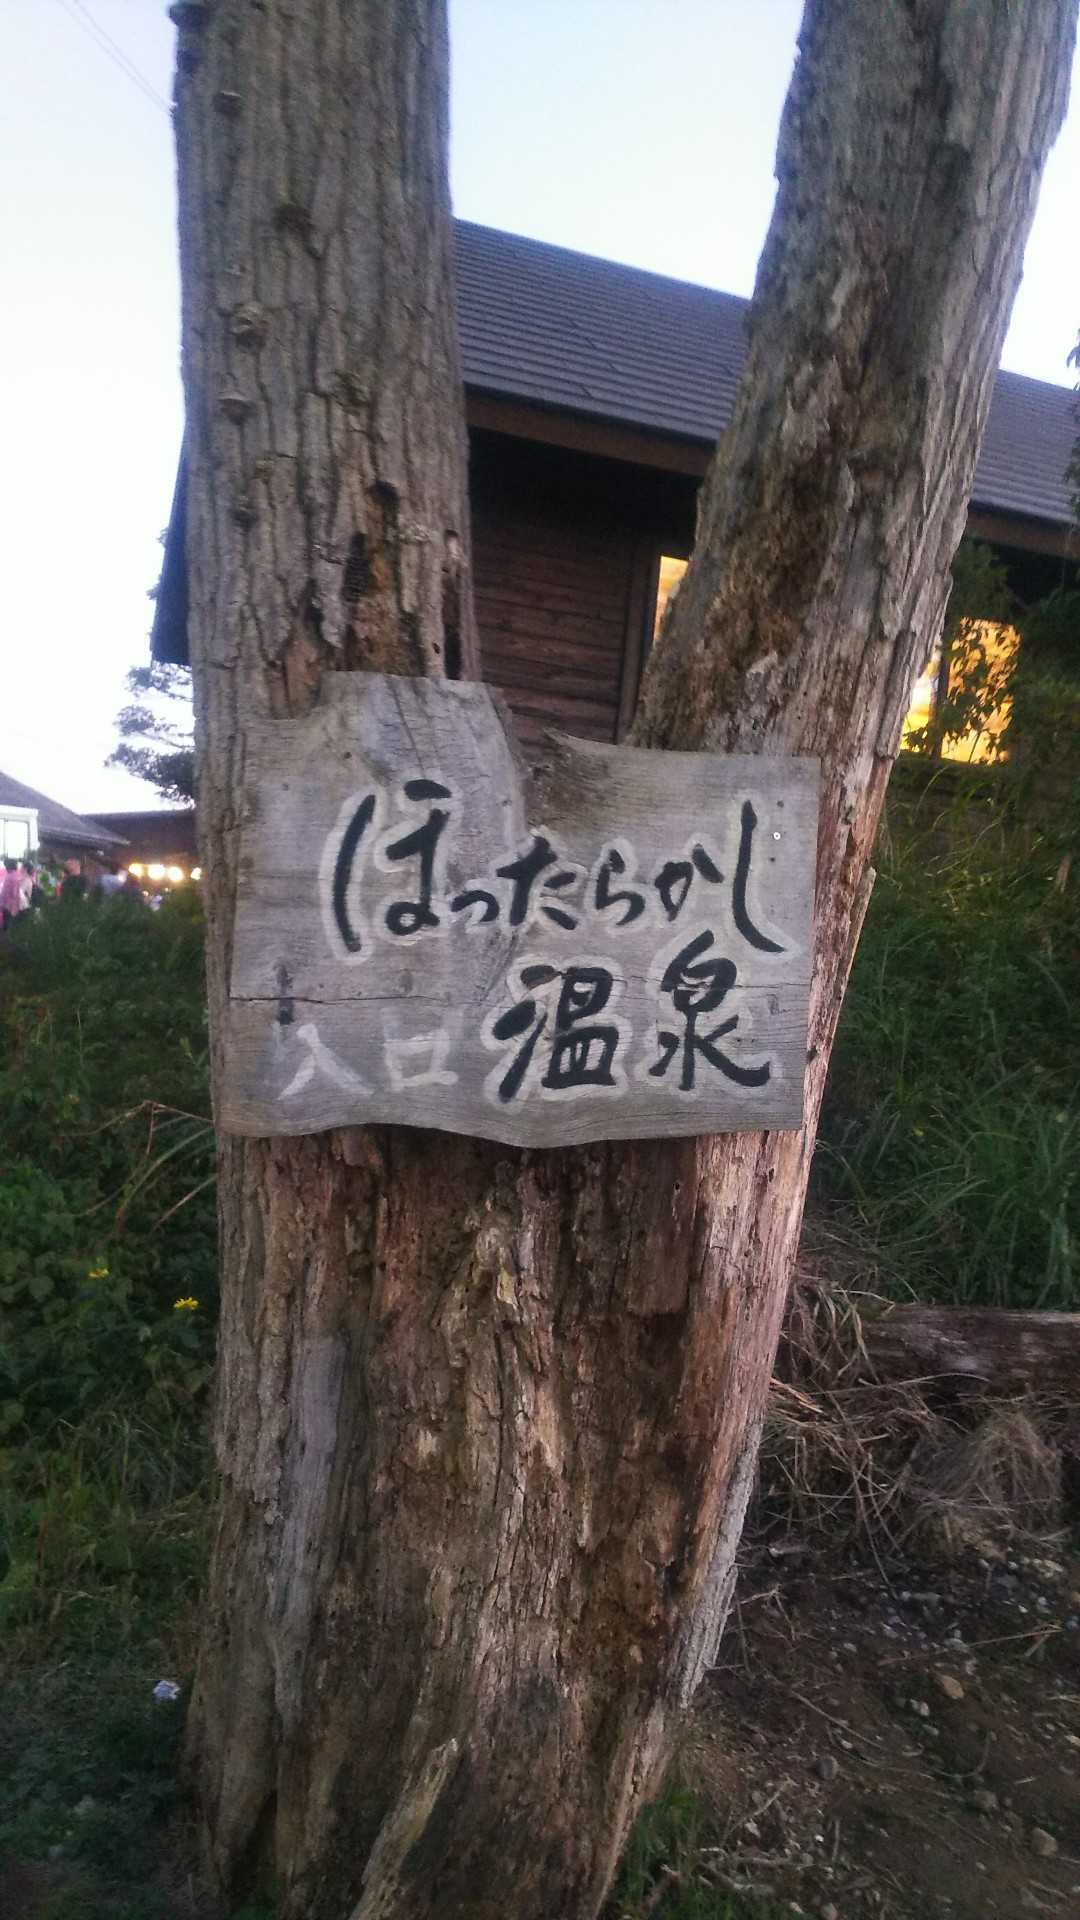 ほったらかし
温泉
入口